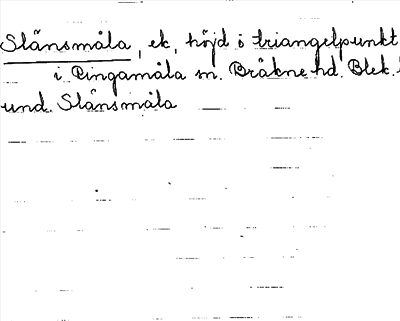 Slänsmåla, ek, höjd o triangelpunkt
i Ringamåla sn. Bräkne hd. Blek.
und. Slänsmåla